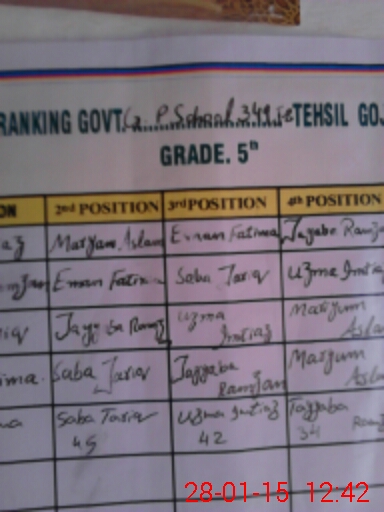 RANKING GOVT. G. P. School 349 TEHSIL GOJ
GRADE. 5th
ON 2nd POSITION 3rd POSITION 4th POSITION
az Maryam Aslam Eman Fatima Tayyaba Ramz
Eman Fatima Saba Tariq Uzma Imtiaz
riq Tayyaba Ramz Uzma Imtiaz Maryum Asla
ima. Saba Tariq Tayyaba Ramzan Maryum Asla
Saba Tariq 45 Uzma Imtiaz 42 Tayyaba Ramz 34
28-01-15 12:42